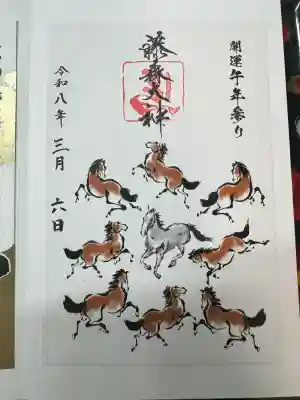 開運午年参り
藤森大神
令和八年 三月 六日